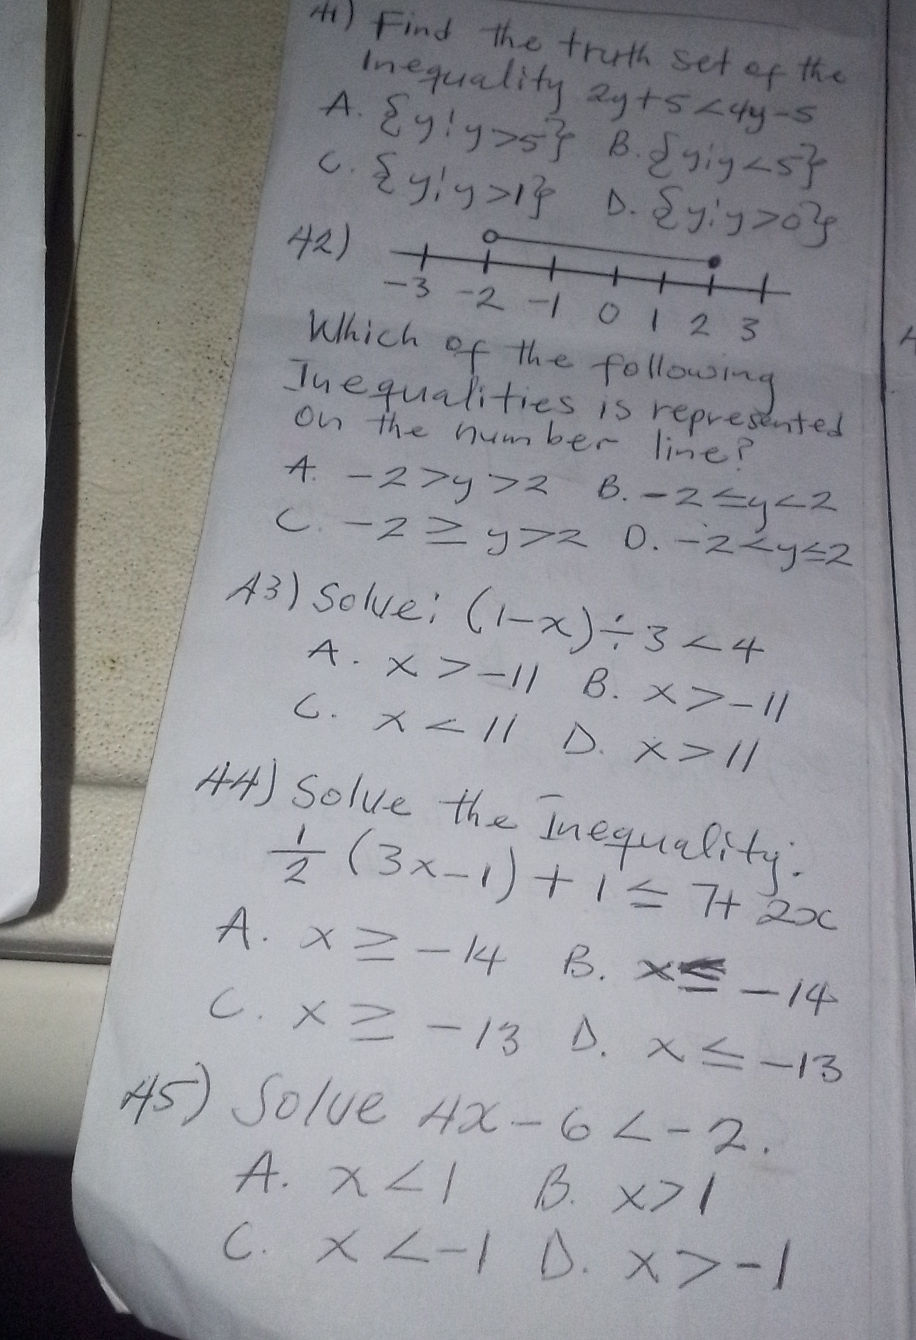 41) Find the truth set of the
Inequality 2y+5<4y-5
A. {y:y>5} B. {y:y<5}
C. {y:y>1} D. {y:y>0}
42)
-3 -2 -1 0 1 2 3
Which of the following
Inequalities is represented
on the number line?
A. -2>y>2 B. -2≤y<2
C. -2≥y>2 D. -2<y≤2
43) Solve: (1-x)÷3<4
A. x>-11 B. x>-11
C. x<11 D. x>11
44) Solve the Inequality:
1/2 (3x-1)+1≤7+2x
A. x≥-14 B. x≤-14
C. x≥-13 D. x≤-13
45) Solve 4x-6<-2.
A. x<1 B. x>1
C. x<-1 D. x>-1